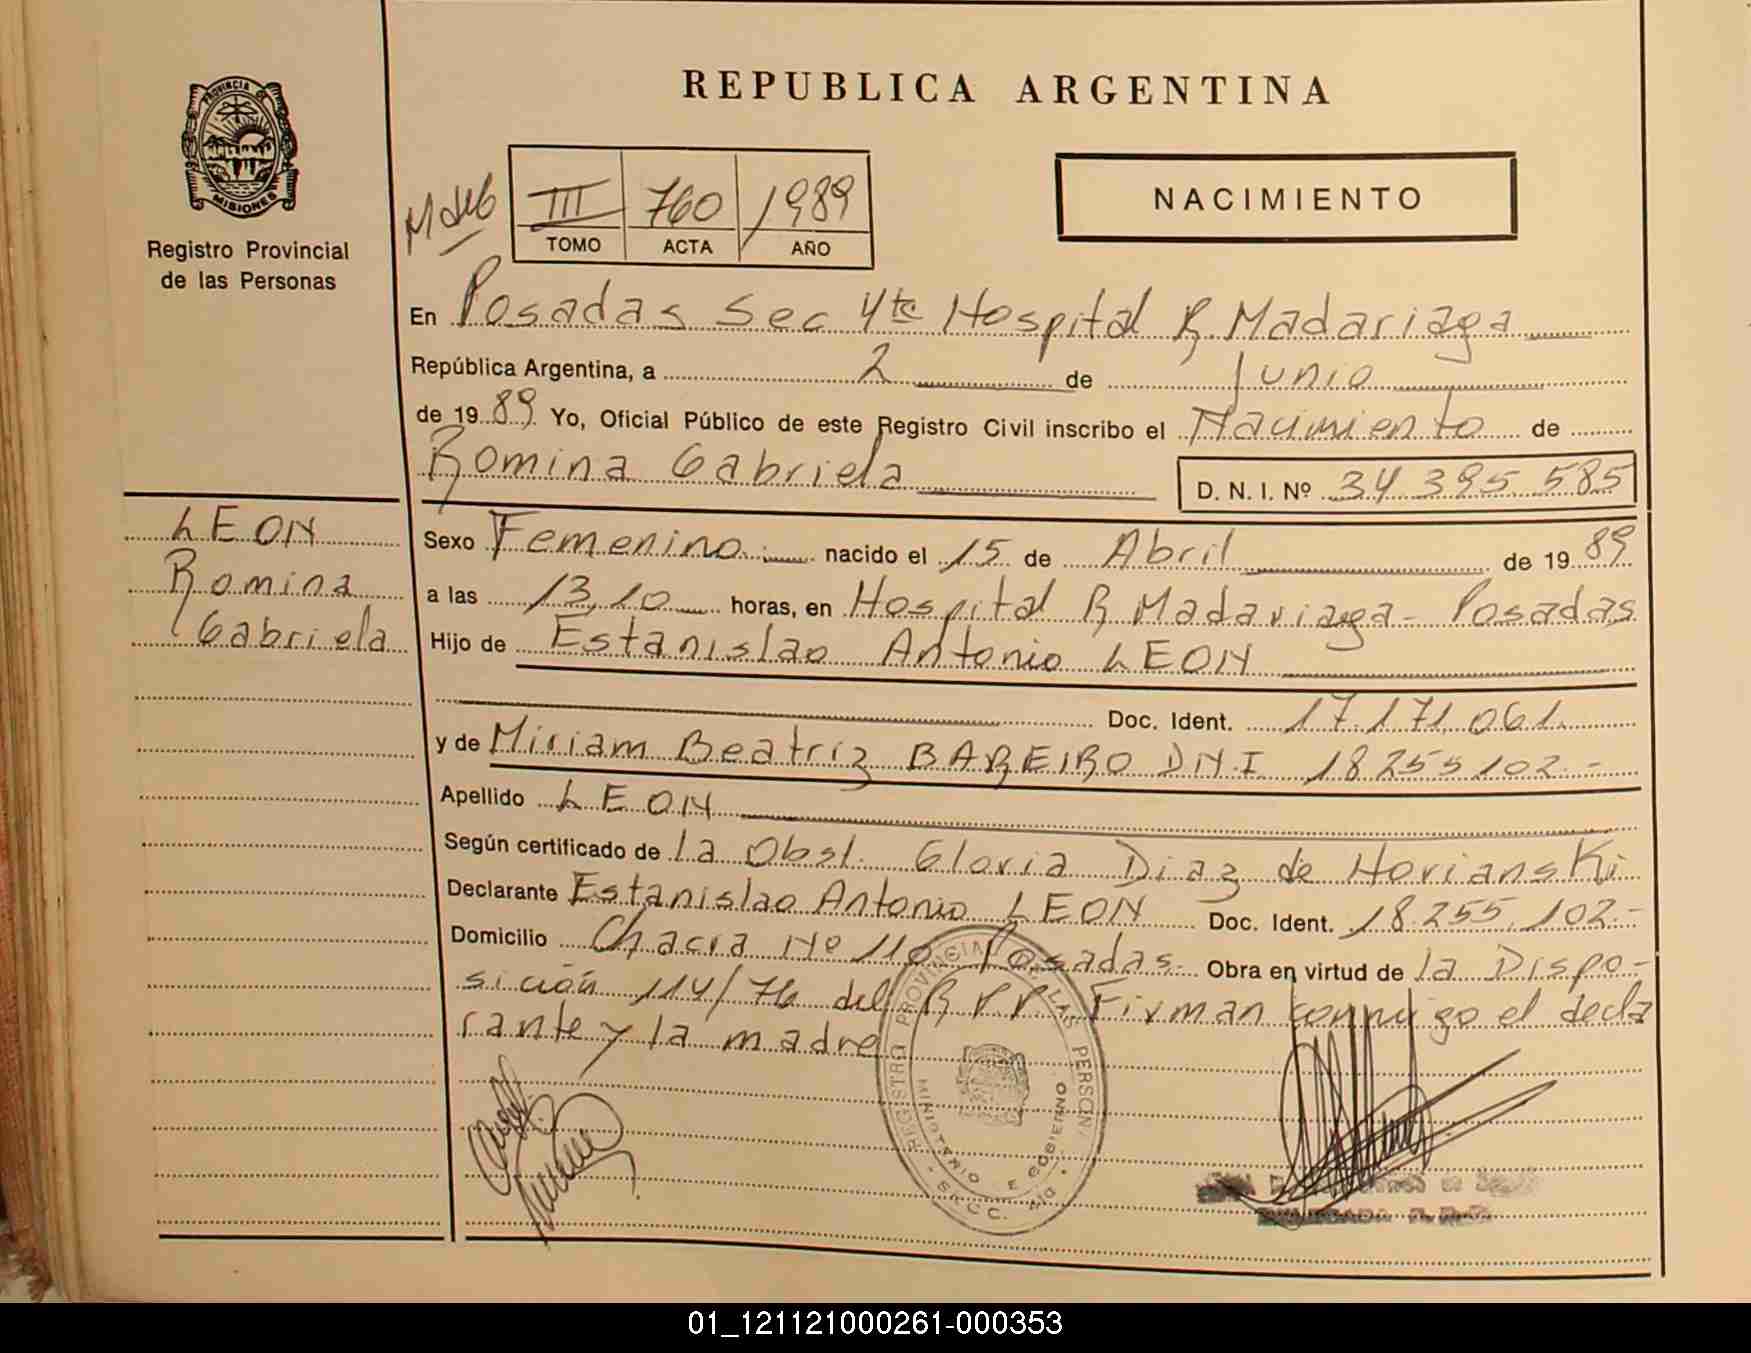 REPUBLICA ARGENTINA
PROVINCIA DE
MISIONES
Registro Provincial
de las Personas
III 760 1989
TOMO ACTA AÑO
NACIMIENTO
En Posadas Sec 4ta Hospital R. Madariaga
República Argentina, a 2 de Junio
de 1989 Yo, Oficial Público de este Registro Civil inscribo el Nacimiento de
Romina Gabriela D. N. I. Nº 34 395 585
LEON
Romina
Gabriela
Sexo Femenino nacido el 15 de Abril de 1989
a las 13,10 horas, en Hospital R Madariaga - Posadas
Hijo de Estanislao Antonio LEON
Doc. Ident. 17.171.061.
y de Miriam Beatriz BAREIRO DN.I 18 255 102.-
Apellido LEON
Según certificado de la Obst. Gloria Diaz de Horianski
Declarante Estanislao Antonio LEON Doc. Ident. 18.255.102.-
Domicilio Chacra Nº 110 Posadas. Obra en virtud de la Dispo-
sición 114/76 del R P P. Firman conmigo el decla
rante y la madre
REGISTRO PROVINCIAL DE LAS PERSON.
MINISTERIO DE GOBIERNO
01_121121000261-000353